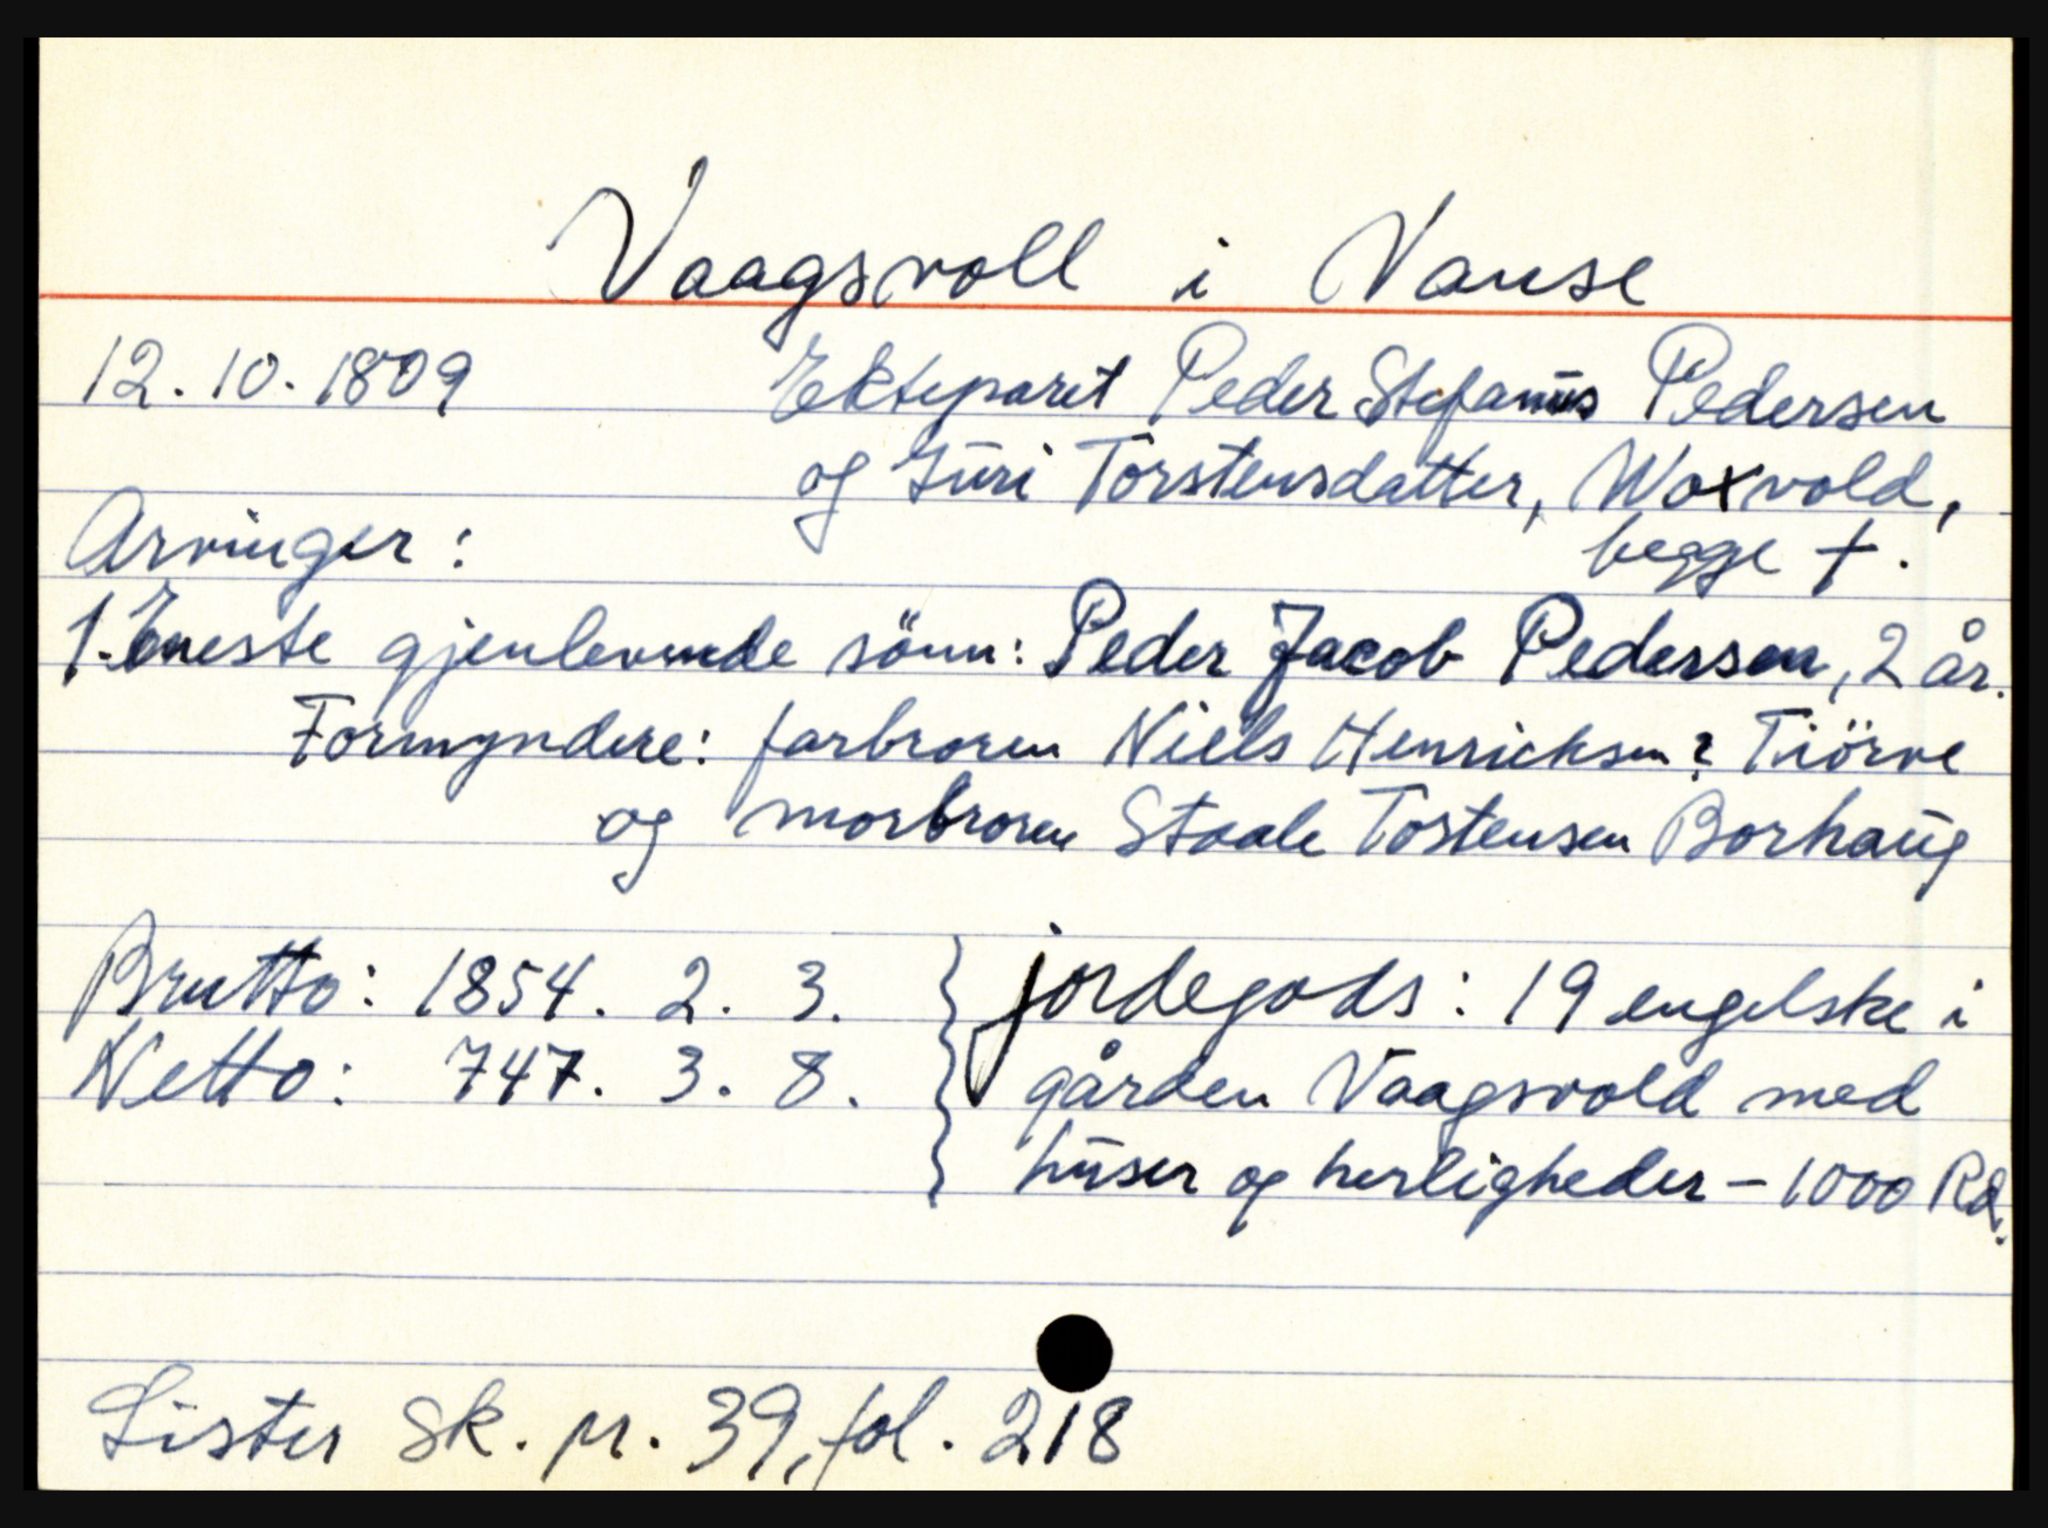 Vaagsvoll i Vanse
12.10.1809 Ekteparet Peder Stefanus Pedersen
og Guri Torstensdatter, Woxvold,
Arvinger: begge †.
1. Eneste gjenlevende sönn: Peder Jacob Pedersen, 2 år.
Formyndere: farbroren Niels Henricksen? Tiörve
og morbroren Staale Tostensen Borhaug
Brutto: 1854. 2. 3. } jordegods: 19 engelske i
Netto: 747. 3. 8. gården Vaagsvold med
huser og herligheder - 1000 Rd.
Lister sk. pr. 39, fol. 218